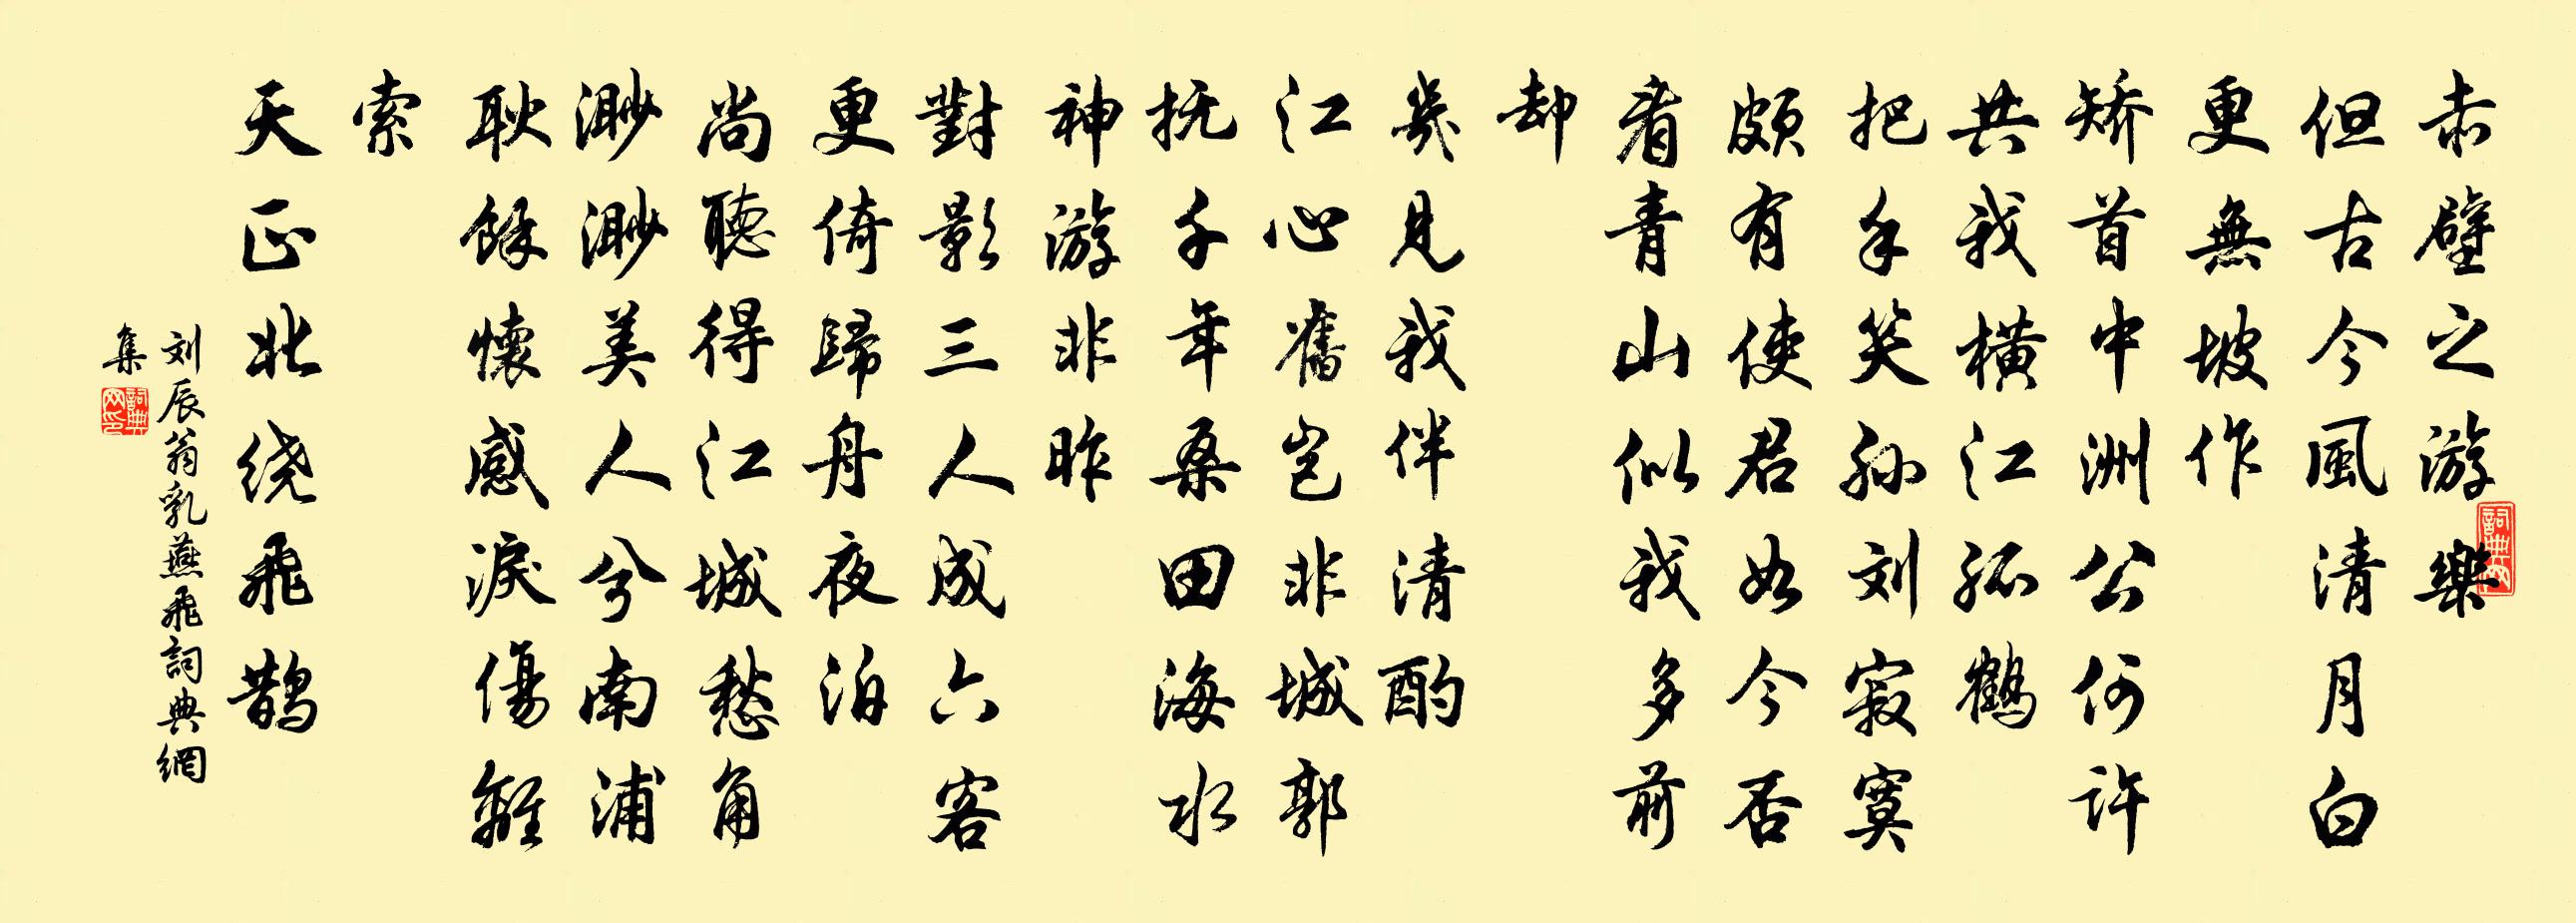 赤壁之游樂
但古今風清月白
更無坡作
矫首中洲公何许
共我橫江孤鶴
把手笑孙刘寂寞
颇有使君如今否
看青山似我多前
却
幾見我伴清酌
江心舊豈非城郭
抚千年桑田海水
神游非昨
對影三人成六客
更倚歸舟夜泊
尚聽得江城愁角
渺渺美人兮南浦
耿餘懷感淚傷離
索
天正北绕飛鹊
刘辰翁乳燕飛詞典網
集
詞典網
詞典網印